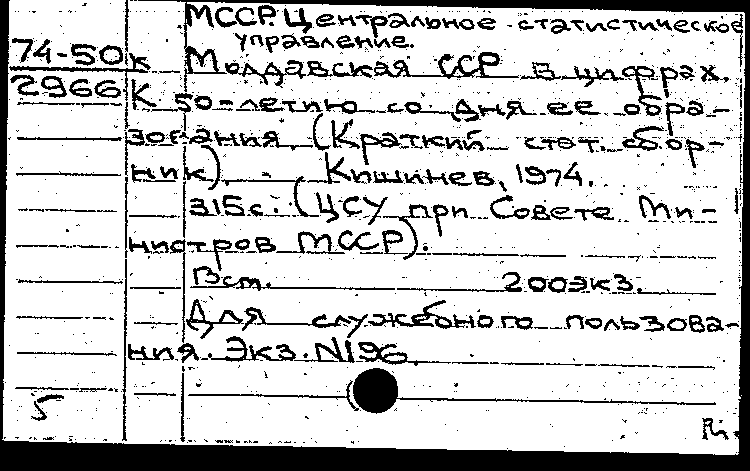 МССР. Центральное статистическое
управление.
74-50к Молдавская ССР в цифрах.
2966 К 50-летию со дня ее обра-
зования. (Краткий стат. сбор-
ник). Кишинев, 1974.
315с. (ЦСУ при Совете Ми-
нистров МССР).
Вст. 200экз.
Для служебного пользова-
ния. Экз. N196.
5